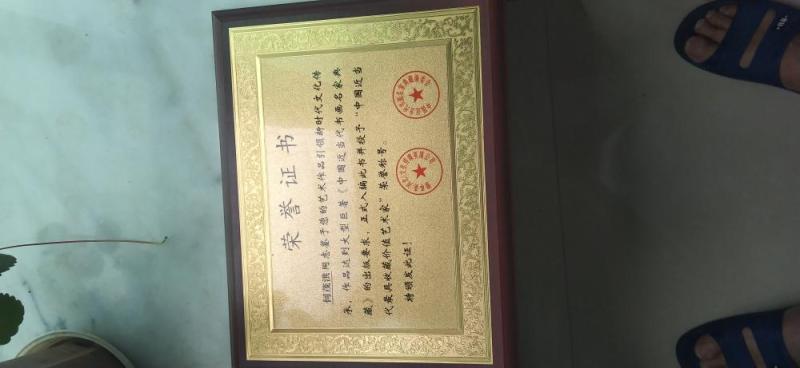 荣誉证书
同志鉴于您的艺术作品引领新时代文化传
承，作品达到大型巨著《中国近当代书画名家典
藏》的出版要求，正式入编此书并授予“中国近当
代最具收藏价值艺术家”荣誉称号。
特颁发此证！